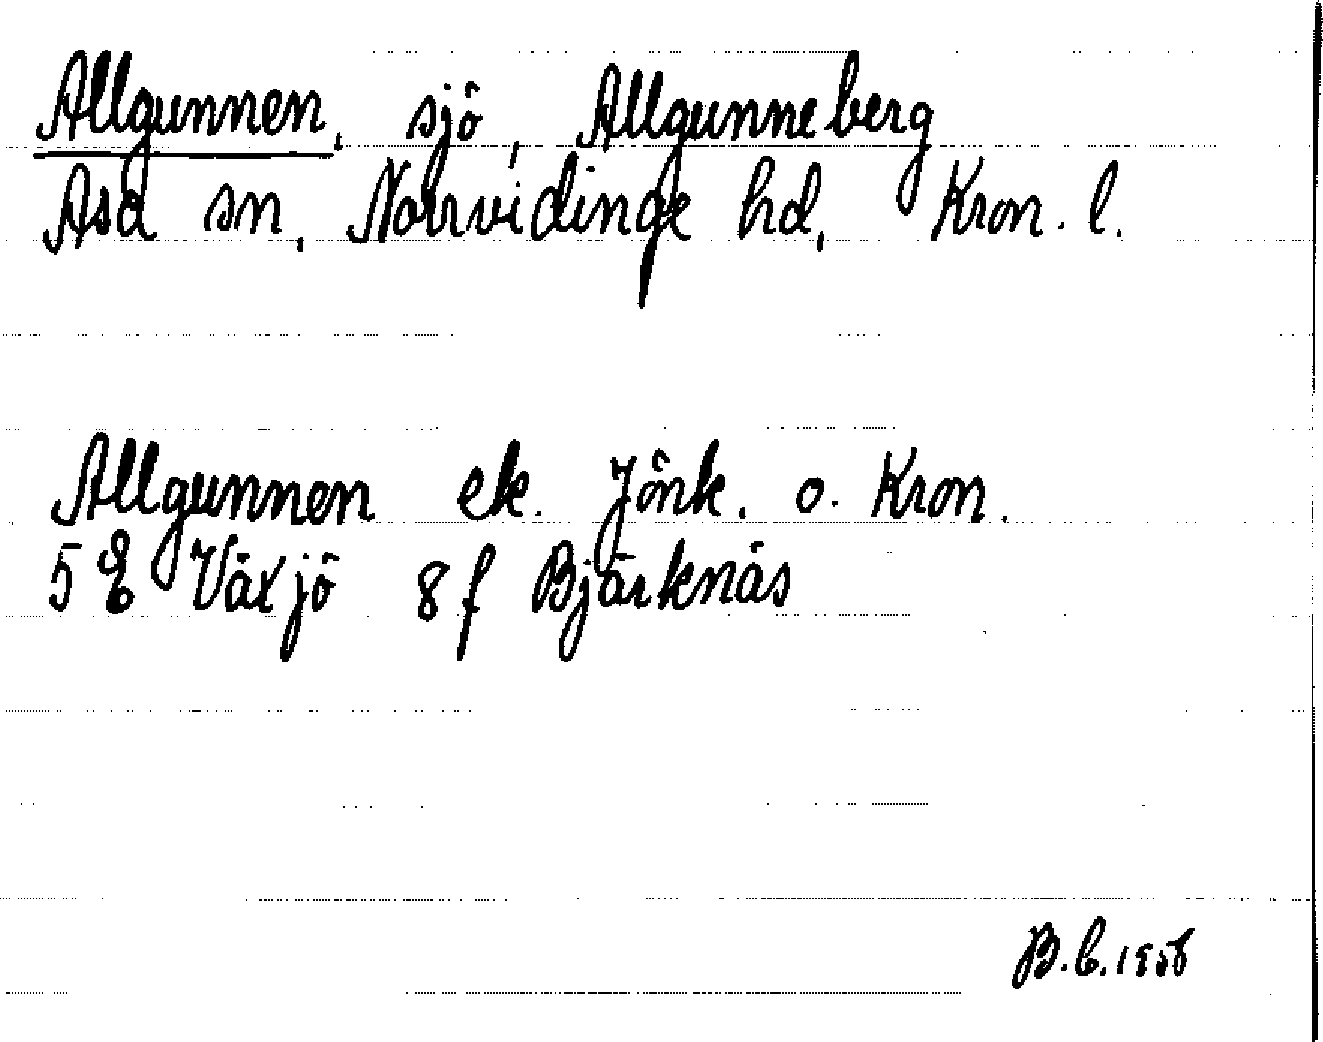 Allgunnen, sjö, Allgunneberg
Asa sn, Norrvidinge hd, Kron. l.
Allgunnen ek. Jönk. o. Kron.
5 E Växjö 8 f Bjärknäs